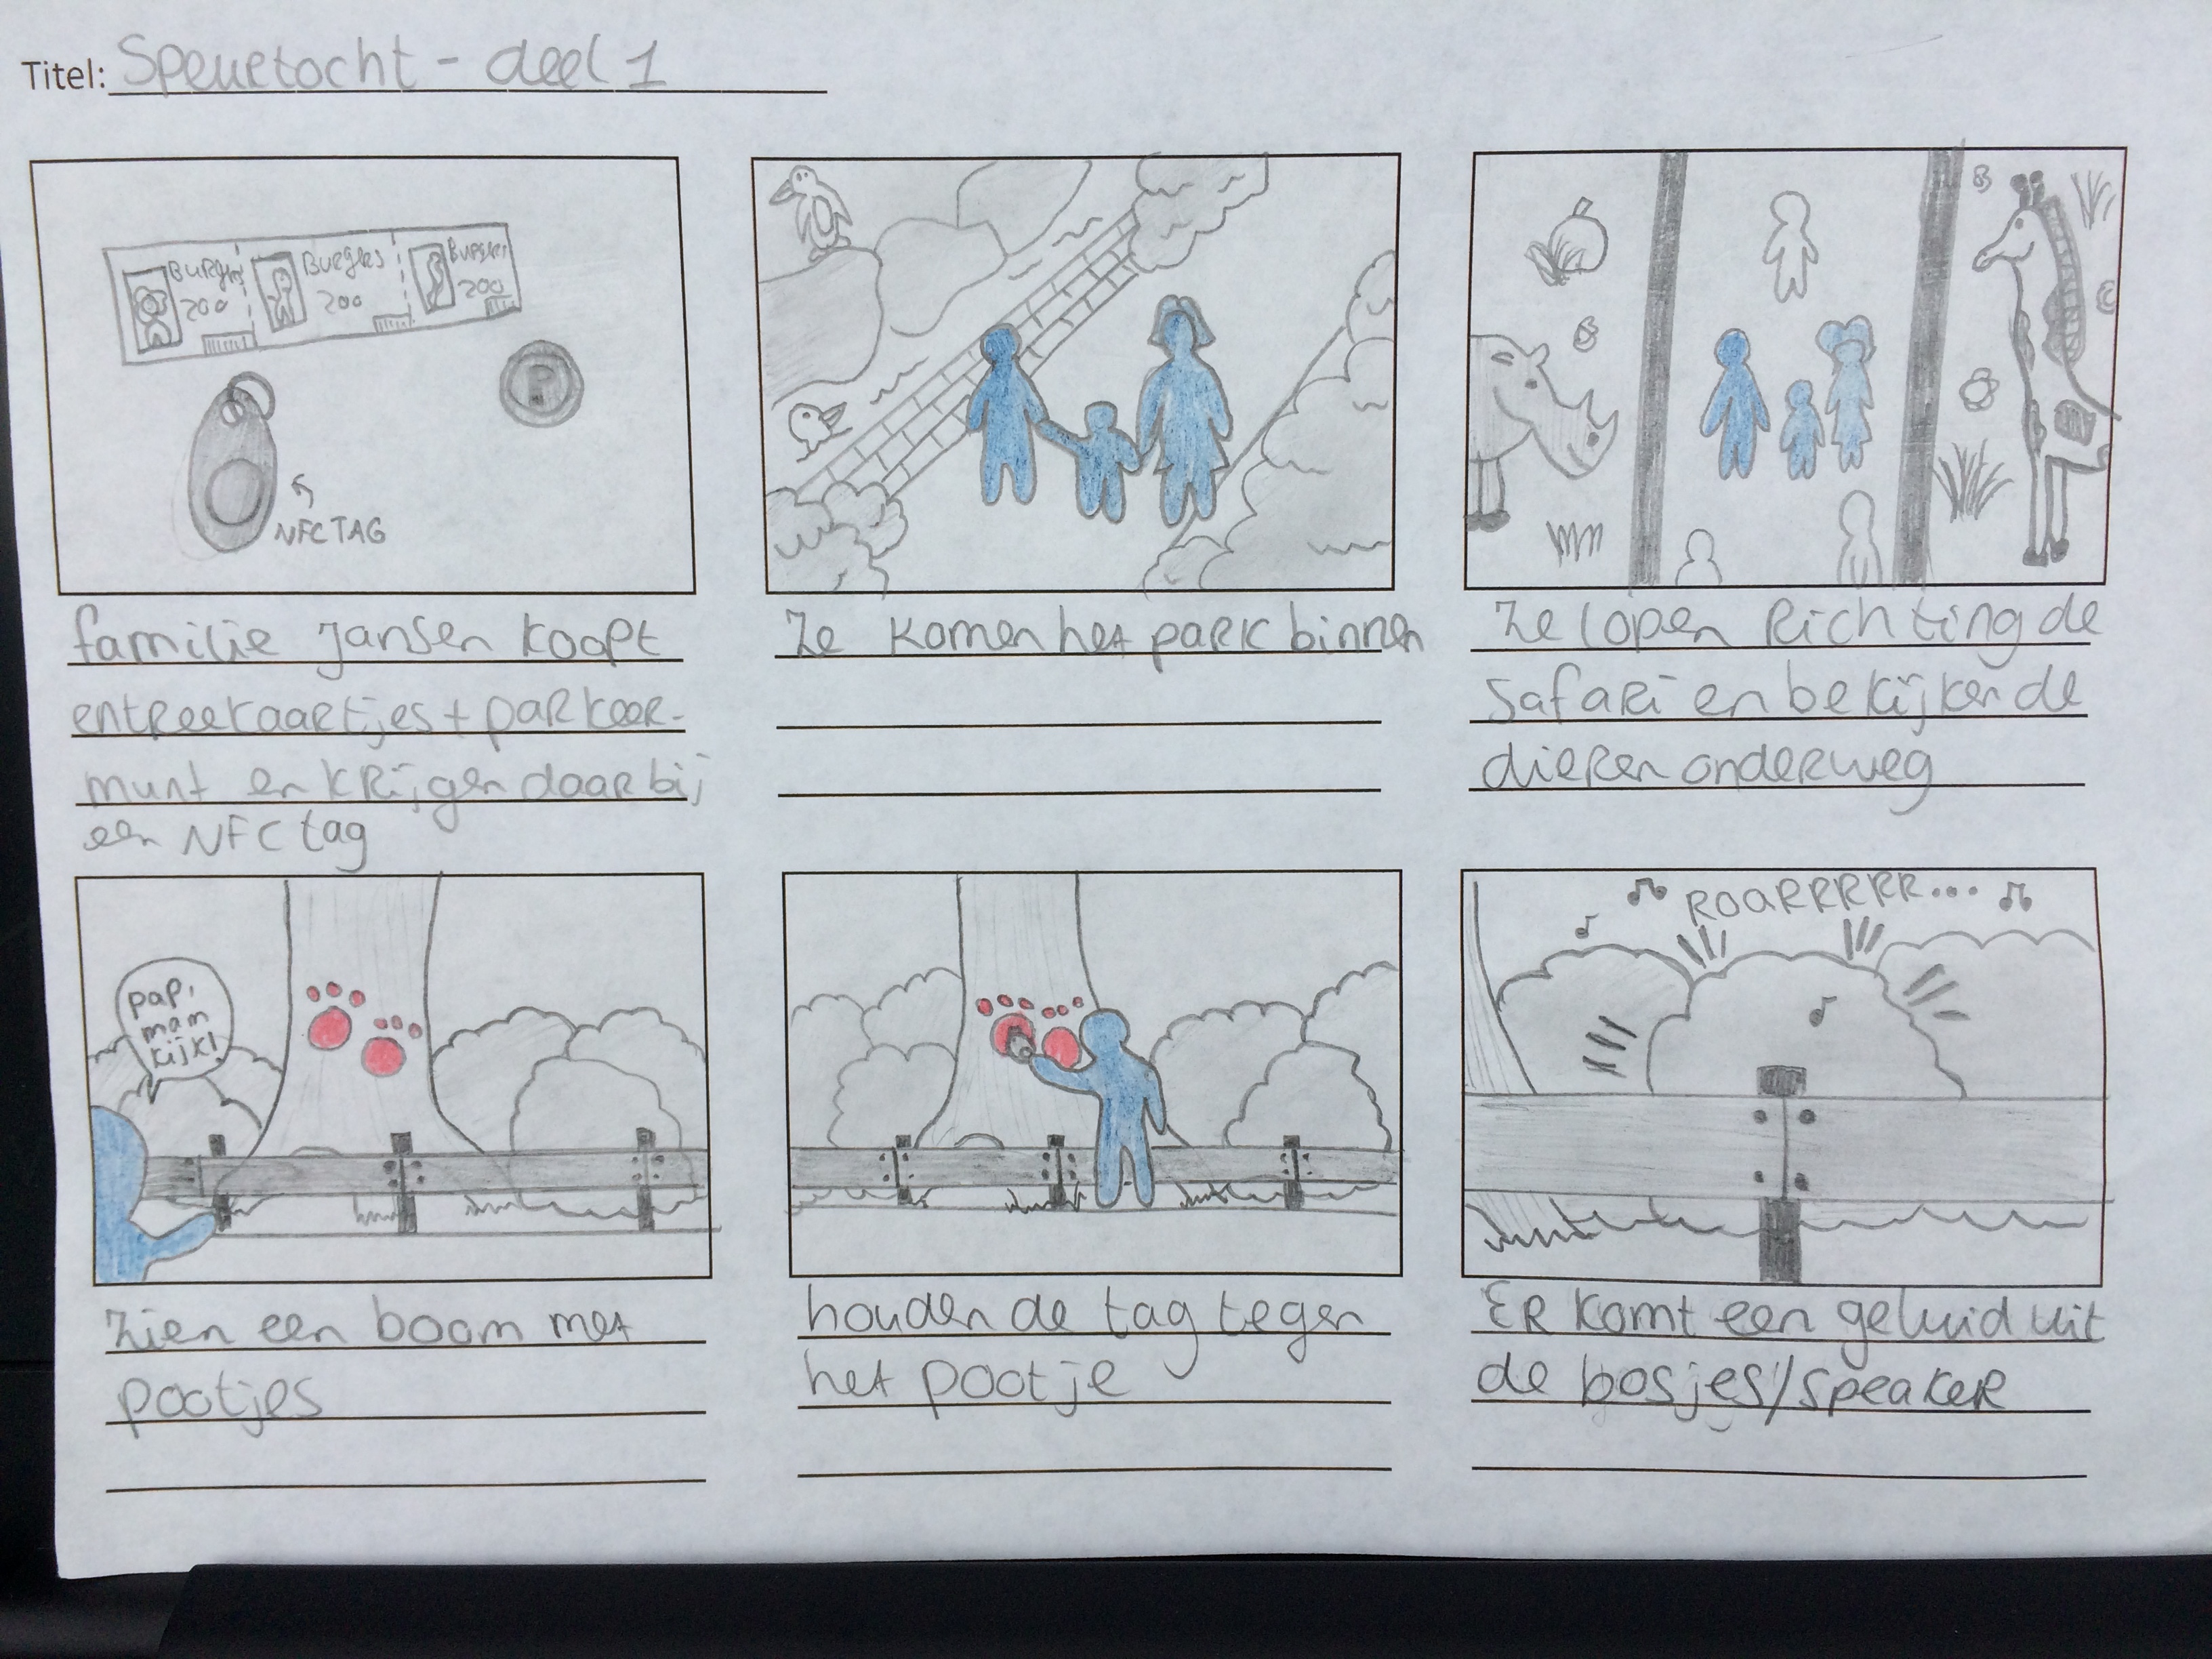 Titel: Speurtocht - deel 1
BURGERS BURGERS BURGERS
200 200 200
P
NFC TAG
familie Jansen koopt
entreekaartjes + parkeer-
munt en krijgen daarbij
een NFC tag
Ze komen het park binnen
Ze lopen richting de
Safari en bekijken de
dieren onderweg
pap,
mam
kijk!
zien een boom met
pootjes
houden de tag tegen
het pootje
ROARRRRR...
ER komt een geluid uit
de bosjes/speaker